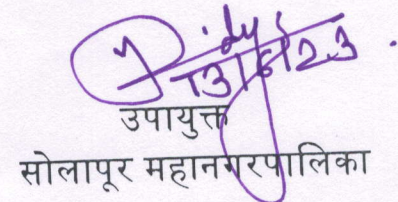 13/6/23
उपायुक्त
सोलापूर महानगरपालिका